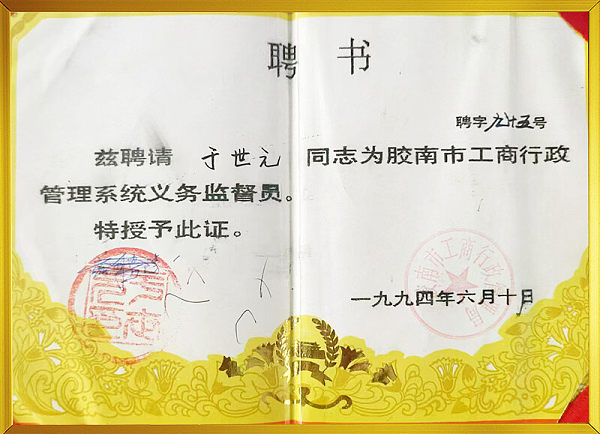 聘书
聘字九十五号
兹聘请 于世元 同志为胶南市工商行政
管理系统义务监督员。
特授予此证。
一九九四年六月十日
胶南市工商行政管理局